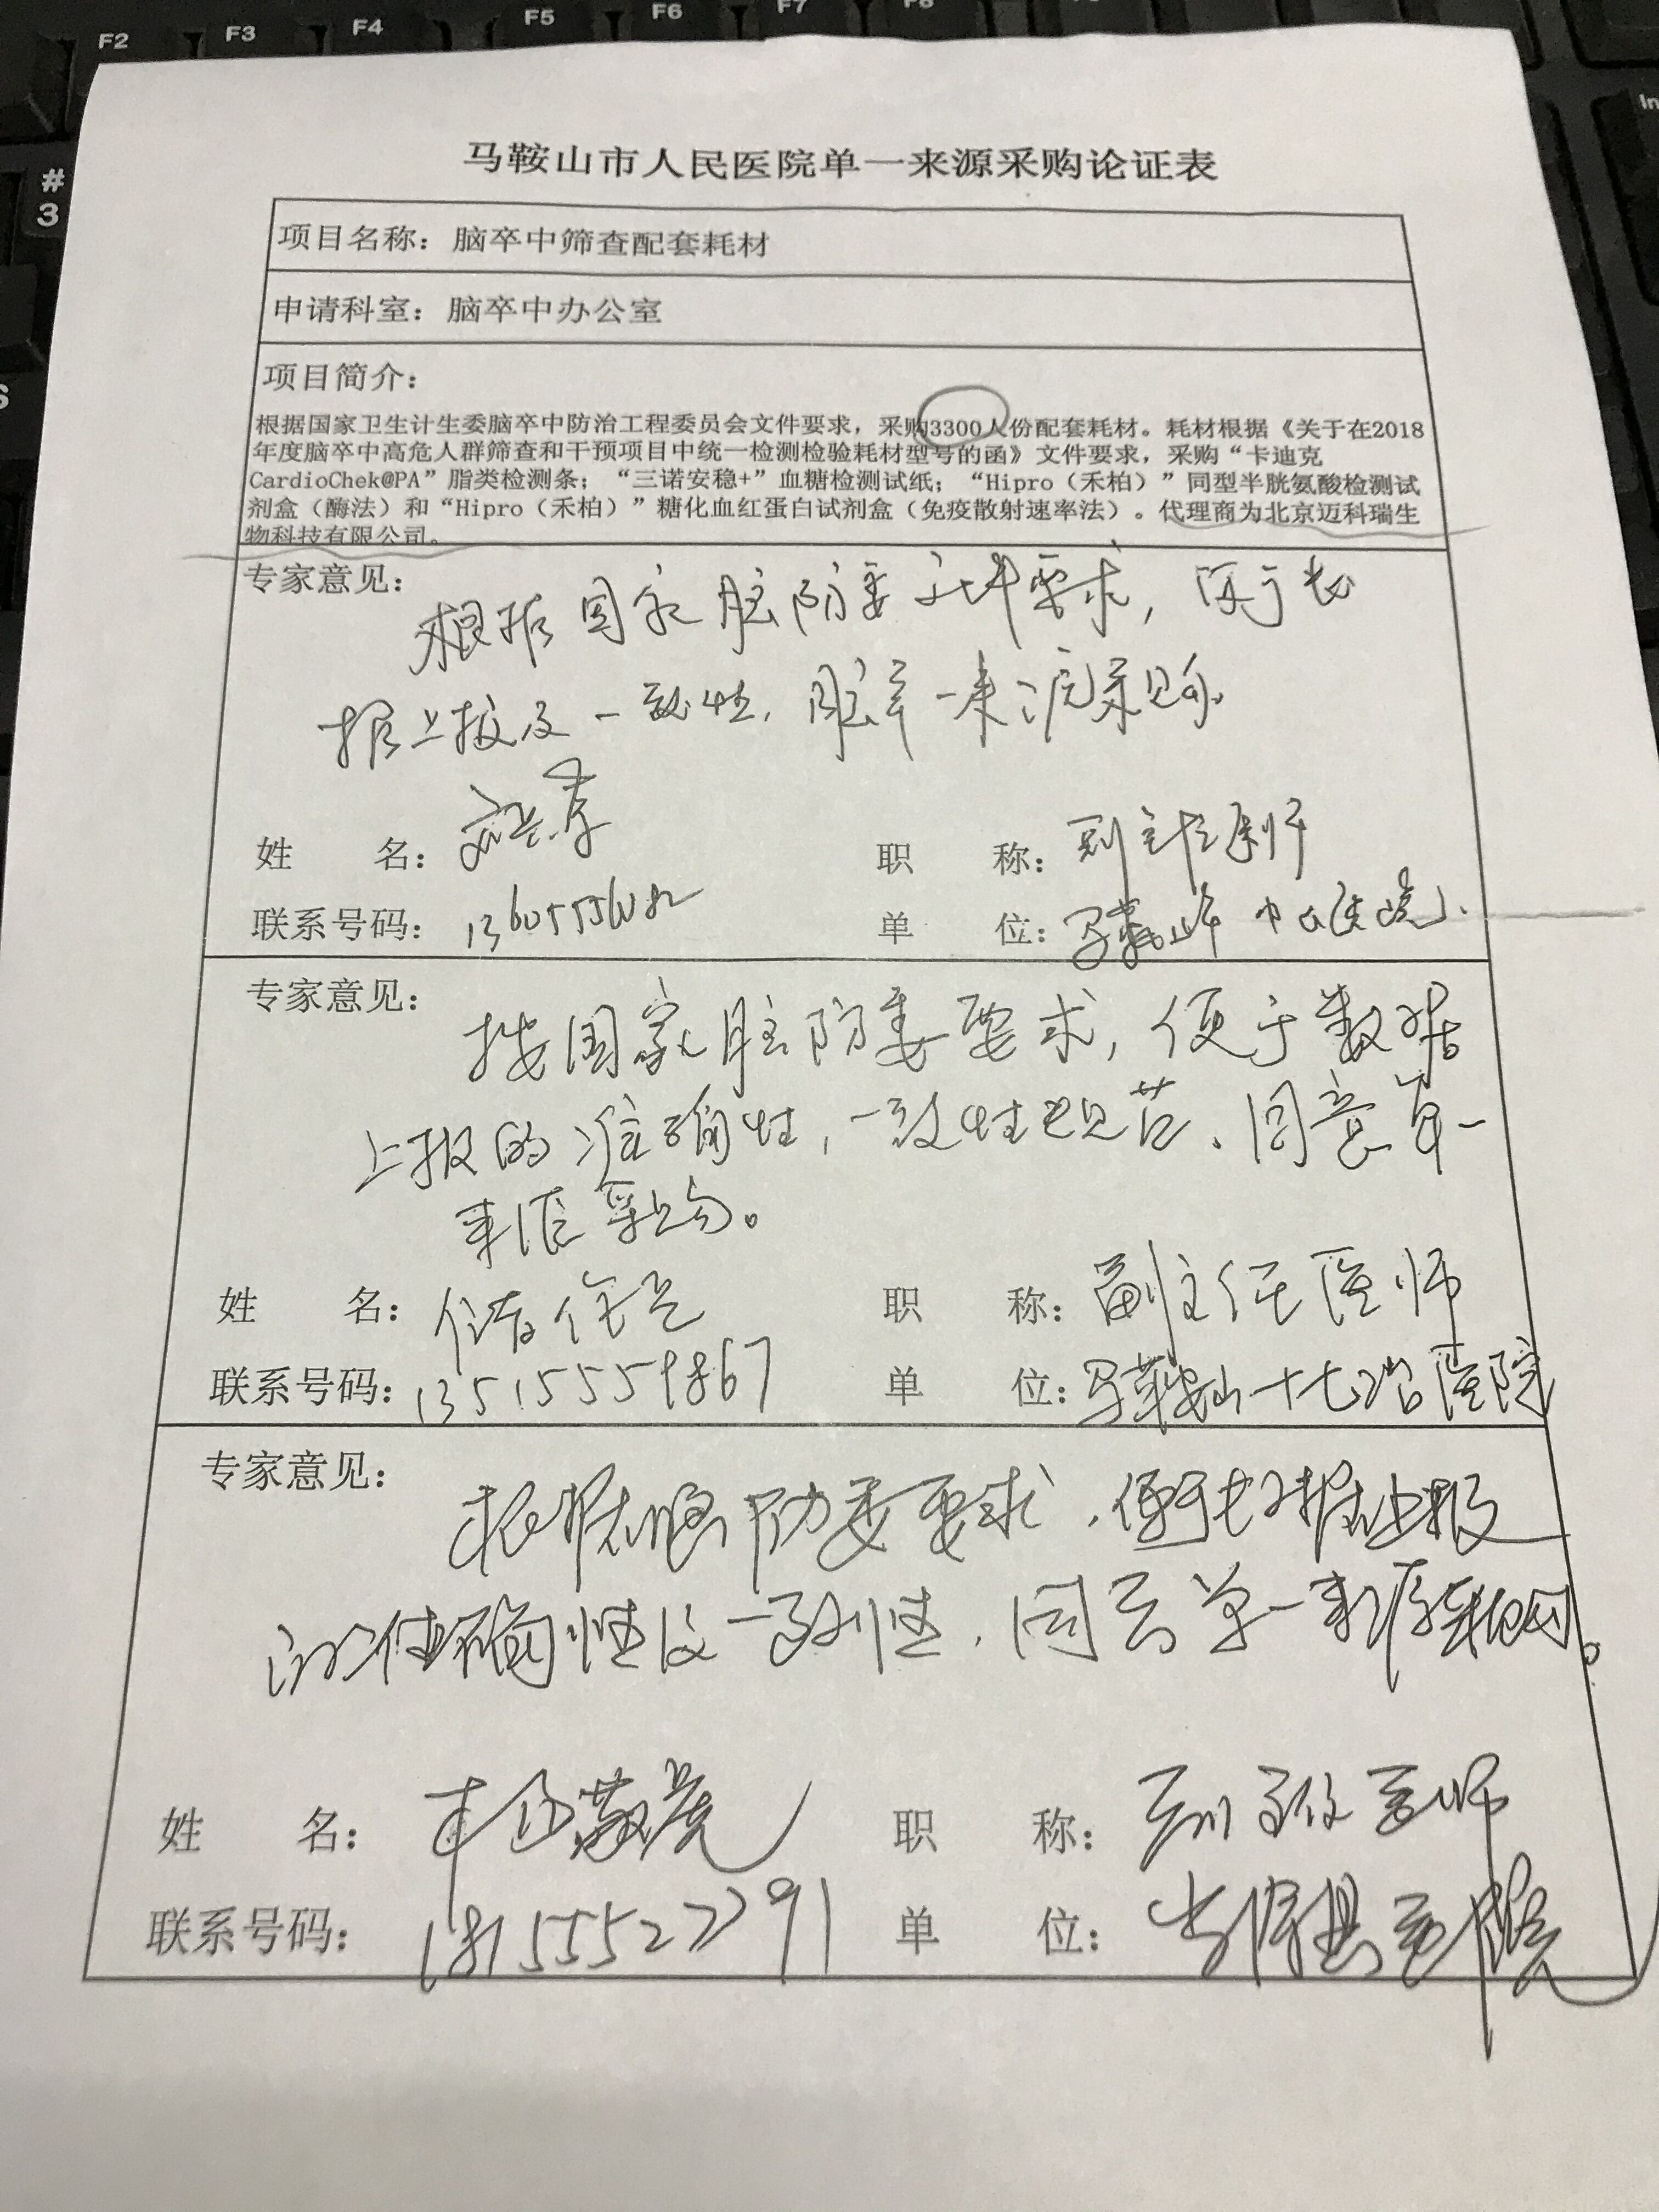 F2 F3 F4 F5 F6 F7 F8
#
3
马鞍山市人民医院单一来源采购论证表
项目名称：脑卒中筛查配套耗材
申请科室：脑卒中办公室
项目简介：
根据国家卫生计生委脑卒中防治工程委员会文件要求，采购3300人份配套耗材。耗材根据《关于在2018
年度脑卒中高危人群筛查和干预项目中统一检测检验耗材型号的函》文件要求，采购“卡迪克
CardioChek@PA”脂类检测条；“三诺安稳+”血糖检测试纸；“Hipro（禾柏）”同型半胱氨酸检测试
剂盒（酶法）和“Hipro（禾柏）”糖化血红蛋白试剂盒（免疫散射速率法）。代理商为北京迈科瑞生
物科技有限公司。
专家意见：
根据国家脑防委文件要求，便于数
据上报及一致性，单一来源采购
姓 名： 职 称：副主任医师
联系号码： 单 位：马鞍山市中医院
专家意见：
按国家脑防委要求，便于数据
上报的准确性，一致性规范、同意单一
来源采购。
姓 名： 职 称：副主任医师
联系号码：13515559867 单 位：马鞍山十七冶医院
专家意见：
根据脑防委要求，便于数据上报
的准确性及一致性，同意单一来源采购。
姓 名： 职 称：副主任医师
联系号码：18155522791 单 位：